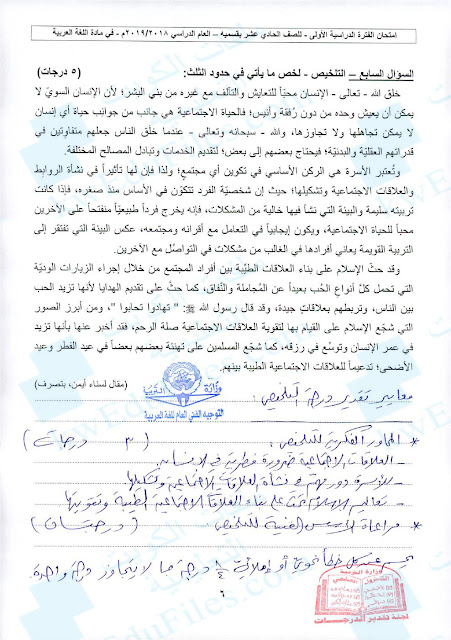 امتحان الفترة الدراسية الأولى - للصف الحادي عشر بقسميه – العام الدراسي ٢٠١٩/٢٠١٨م - في مادة اللغة العربية
السؤال السابع – التلخيص - لخص ما يأتي في حدود الثلث: (٥ درجات)
خلق الله - تعالى - الإنسان محبّاً للتعايش والتآلف مع غيره من بني البشر؛ لأن الإنسان السويّ لا
يمكن أن يعيش وحده من دون رُفقة وأنيس؛ فالحياة الاجتماعية هي جانب من جوانب حياة أي إنسان
لا يمكن تجاهلها ولا تجاوزها، والله - سبحانه وتعالى - عندما خلق الناس جعلهم متفاوتين في
قدراتهم العقليّة والبدنيّة؛ فيحتاج بعضهم إلى بعض؛ لتقديم الخدمات وتبادل المصالح المختلفة.
وتُعتبر الأسرة هي الركن الأساسي في تكوين أي مجتمع؛ ولذا فإن لها تأثيراً في نشأة الروابط
والعلاقات الاجتماعية وتشكيلها؛ حيث إن شخصيّة الفرد تتكوّن في الأساس منذ صغره، فإذا كانت
تربيته سليمة والبيئة التي نشأ فيها خالية من المشكلات، فإنه يخرج فرداً طبيعيّاً منفتحاً على الآخرين
محباً للحياة الاجتماعية، ويكون إيجابياً في التعامل مع أقرانه ومجتمعه، عكس البيئة التي تفتقر إلى
التربية القويمة يعاني أفرادها في الغالب من مشكلات في التواصُل مع الآخرين.
وقد حثّ الإسلام على بناء العلاقات الطيّبة بين أفراد المجتمع من خلال إجراء الزيارات الوديّة
التي تحمل كلّ أنواع الحُب بعيداً عن المُجاملة والنّفاق، كما حثّ على تقديم الهدايا لأنها تزيد الحب
بين الناس، وتربطهم بعلاقاتٍ جيدة، وقد قال رسول الله ﷺ: " تهادوا تحابوا "، ومن أبرز الصور
التي شجّع الإسلام على القيام بها لتقوية العلاقات الاجتماعية صلة الرحم، فقد أخبر عنها بأنها تزيد
في عمر الإنسان وتوسّع في رزقه، كما شجّع المسلمين على تهنئة بعضهم بعضاً في عيد الفطر وعيد
الأضحى؛ تدعيماً للعلاقات الاجتماعية الطيبة بينهم.
(مقال لسناء أيمن، بتصرف)
وزارة التربية
التوجيه الفني العام للغة العربية
معايير تقدير درجة التلخيص:
* المحاور الفكرية للتلخيص: (٣ درجات)
- العلاقات الاجتماعية ضرورة فطرية في الإنسان.
- للأسرة دور مهم في نشأة العلاقات الاجتماعية وتشكيلها
- تعاليم الإسلام تحث على بناء العلاقات الاجتماعية الطيبة وتقويتها
* مراعاة الأسس الفنية للتلخيص (درجتان)
يحسم عن كل خطأ نحوي أو إملائي ¼ درجة بما لا يتجاوز درجة واحدة
وزارة التربية
لجنة تقدير الدرجات
٦